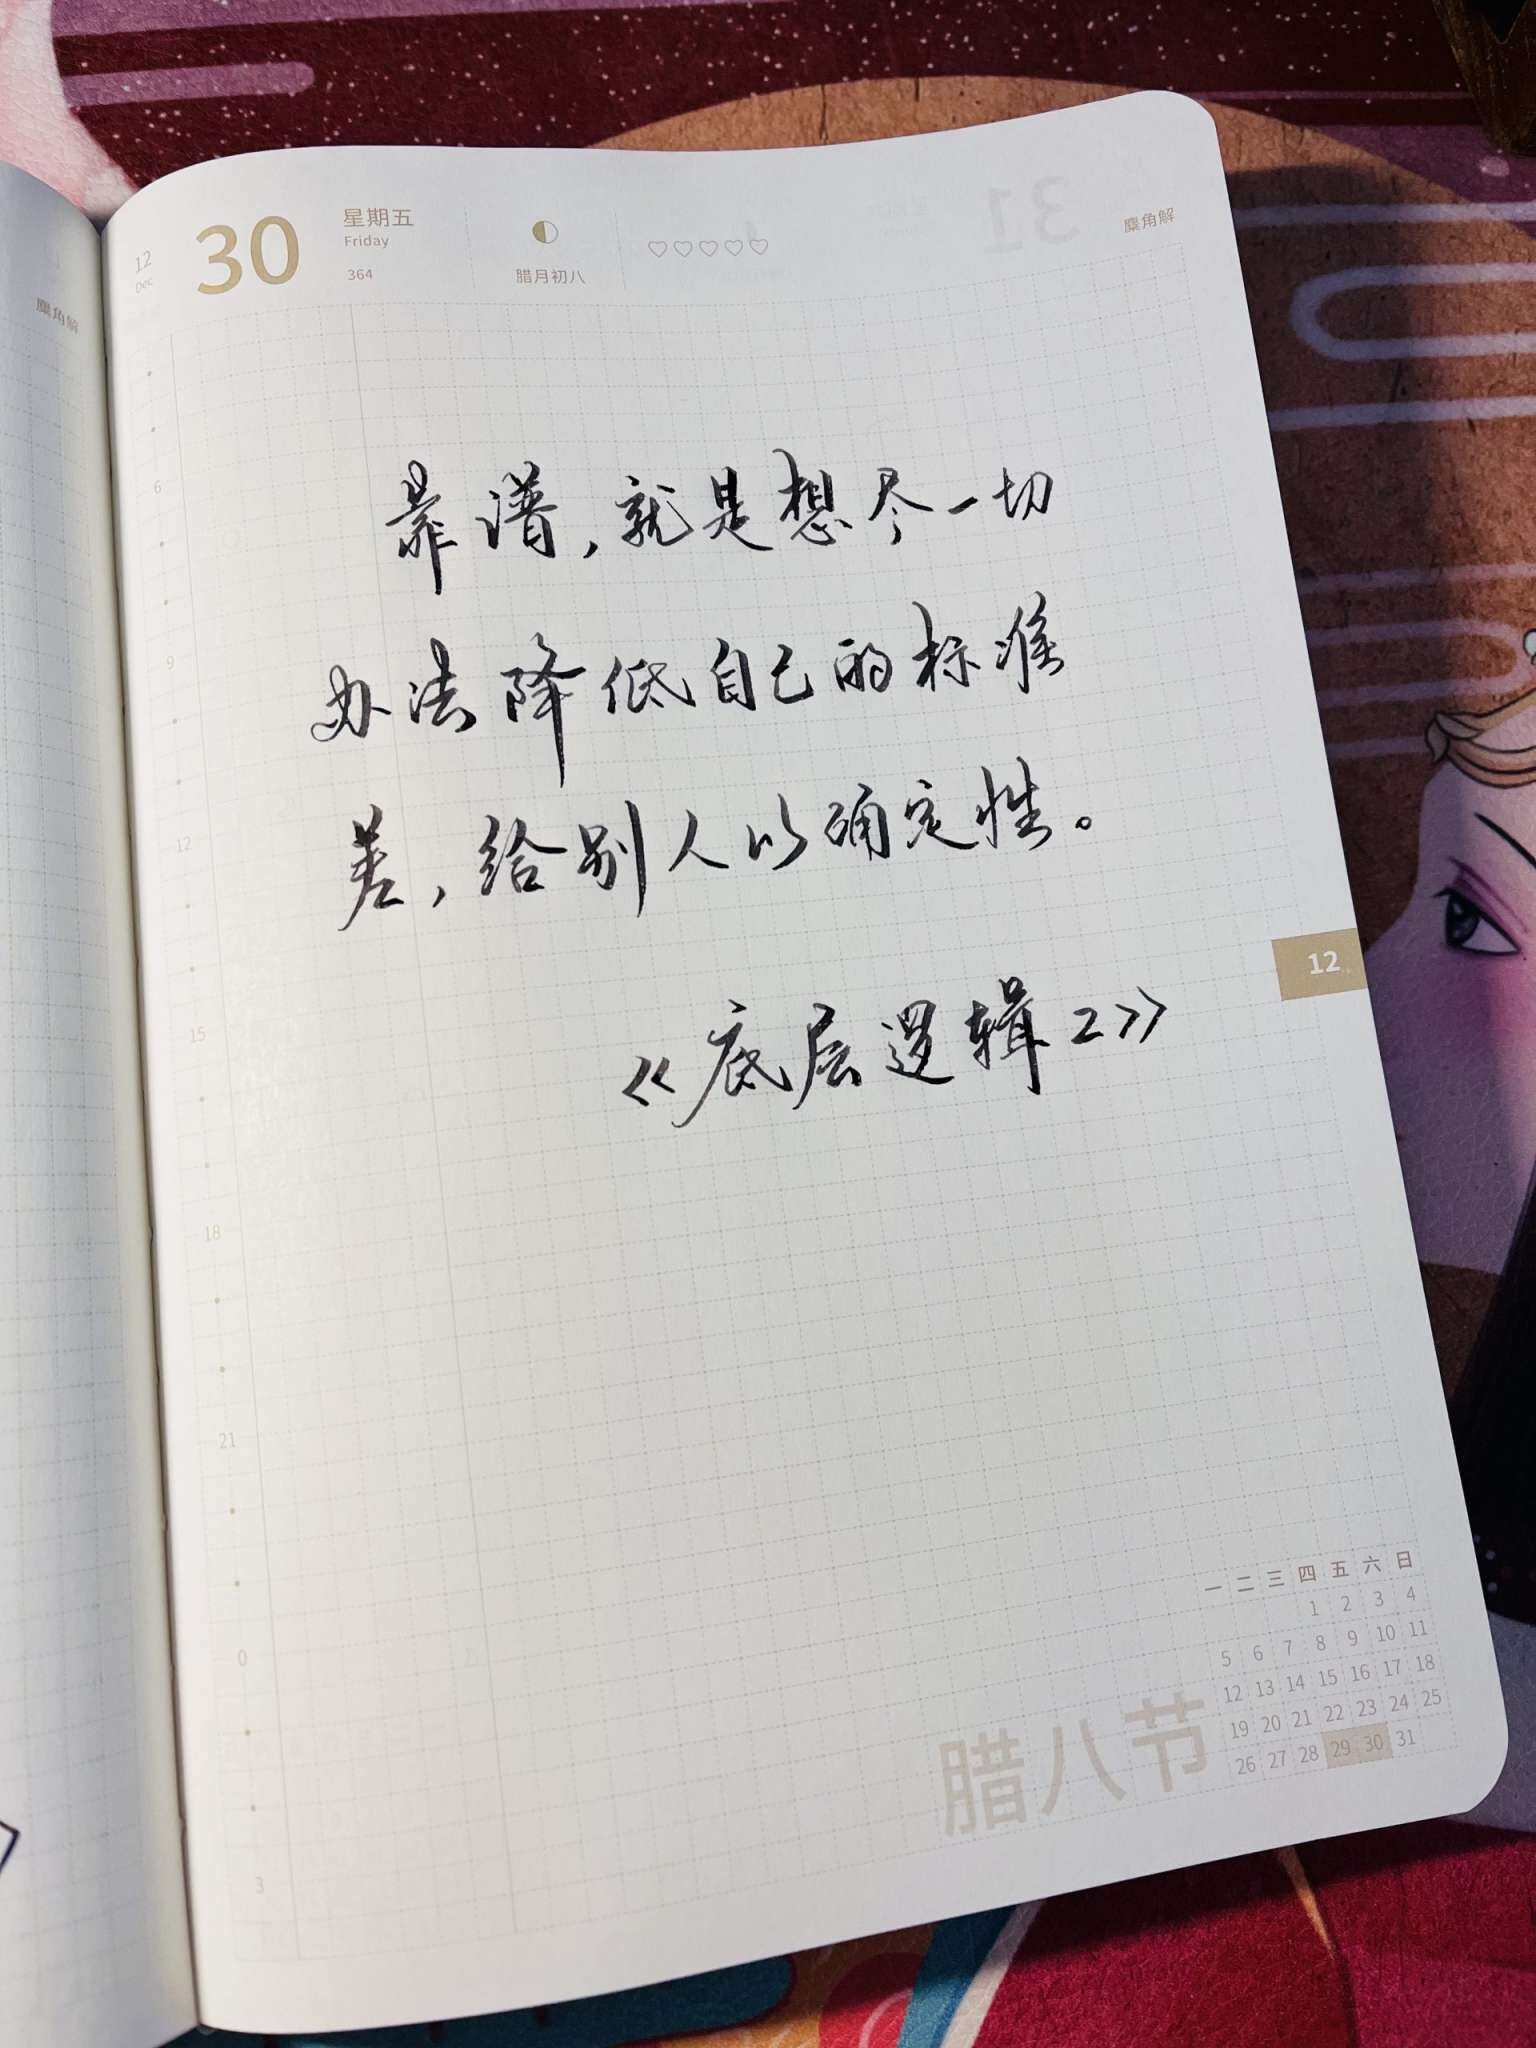 12
Dec
30
星期五
Friday
364
腊月初八
麋角解
麋角解
靠谱,就是想尽一切
办法降低自己的标准
差,给别人以确定性。
《底层逻辑2》
6
9
12
15
18
21
0
3
12
一 二 三 四 五 六 日
1 2 3 4
5 6 7 8 9 10 11
12 13 14 15 16 17 18
19 20 21 22 23 24 25
26 27 28 29 30 31
腊八节
31